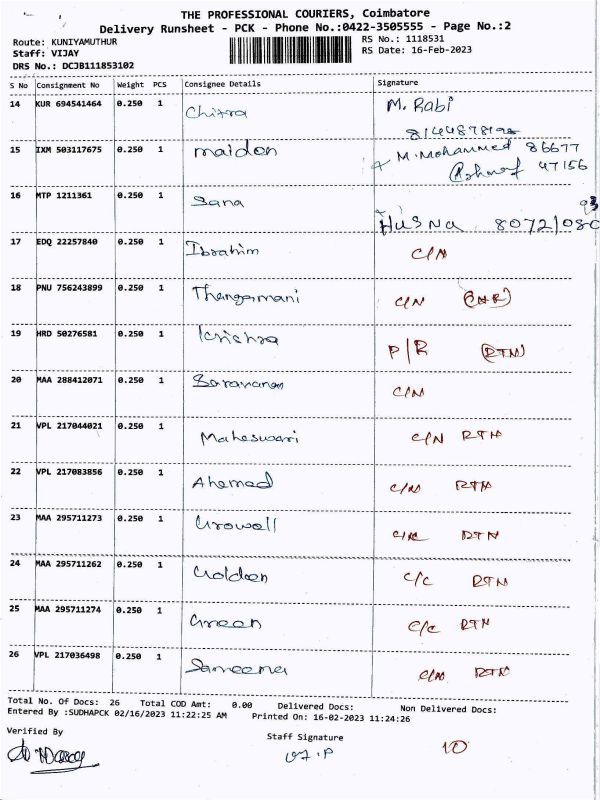 THE PROFESSIONAL COURIERS, Coimbatore
Delivery Runsheet - PCK - Phone No.:0422-3505555 - Page No.:2
Route: KUNIYAMUTHUR RS No.: 1118531
Staff: VIJAY RS Date: 16-Feb-2023
DRS No.: DCJB111853102
S No Consignment No Weight PCS Consignee Details Signature
14 KUR 694541464 0.250 1 Chitra M. Rabi
15 IXM 503117675 0.250 1 maidon M. Mohammed 86677
Ashraf 47156
16 MTP 1211361 0.250 1 Sana HUSNA 8072/080
17 EDQ 22257840 0.250 1 Ibrahim C/N
18 PNU 756243899 0.250 1 Thangamani C/N
19 HRD 50276581 0.250 1 Krishna P/R (RTN)
20 MAA 288412071 0.250 1 Saravanan C/N
21 VPL 217044021 0.250 1 Maheswari C/N RTN
22 VPL 217083856 0.250 1 Ahamed C/N RTN
23 MAA 295711273 0.250 1 Growell RTN
24 MAA 295711262 0.250 1 Golden C/C RTN
25 MAA 295711274 0.250 1 Green C/C RTN
26 VPL 217036498 0.250 1 Sameema C/N RTN
Total No. Of Docs: 26 Total COD Amt: 0.00 Delivered Docs: Non Delivered Docs:
Entered By :SUDHAPCK 02/16/2023 11:22:25 AM Printed On: 16-02-2023 11:24:26
Verified By Staff Signature
10